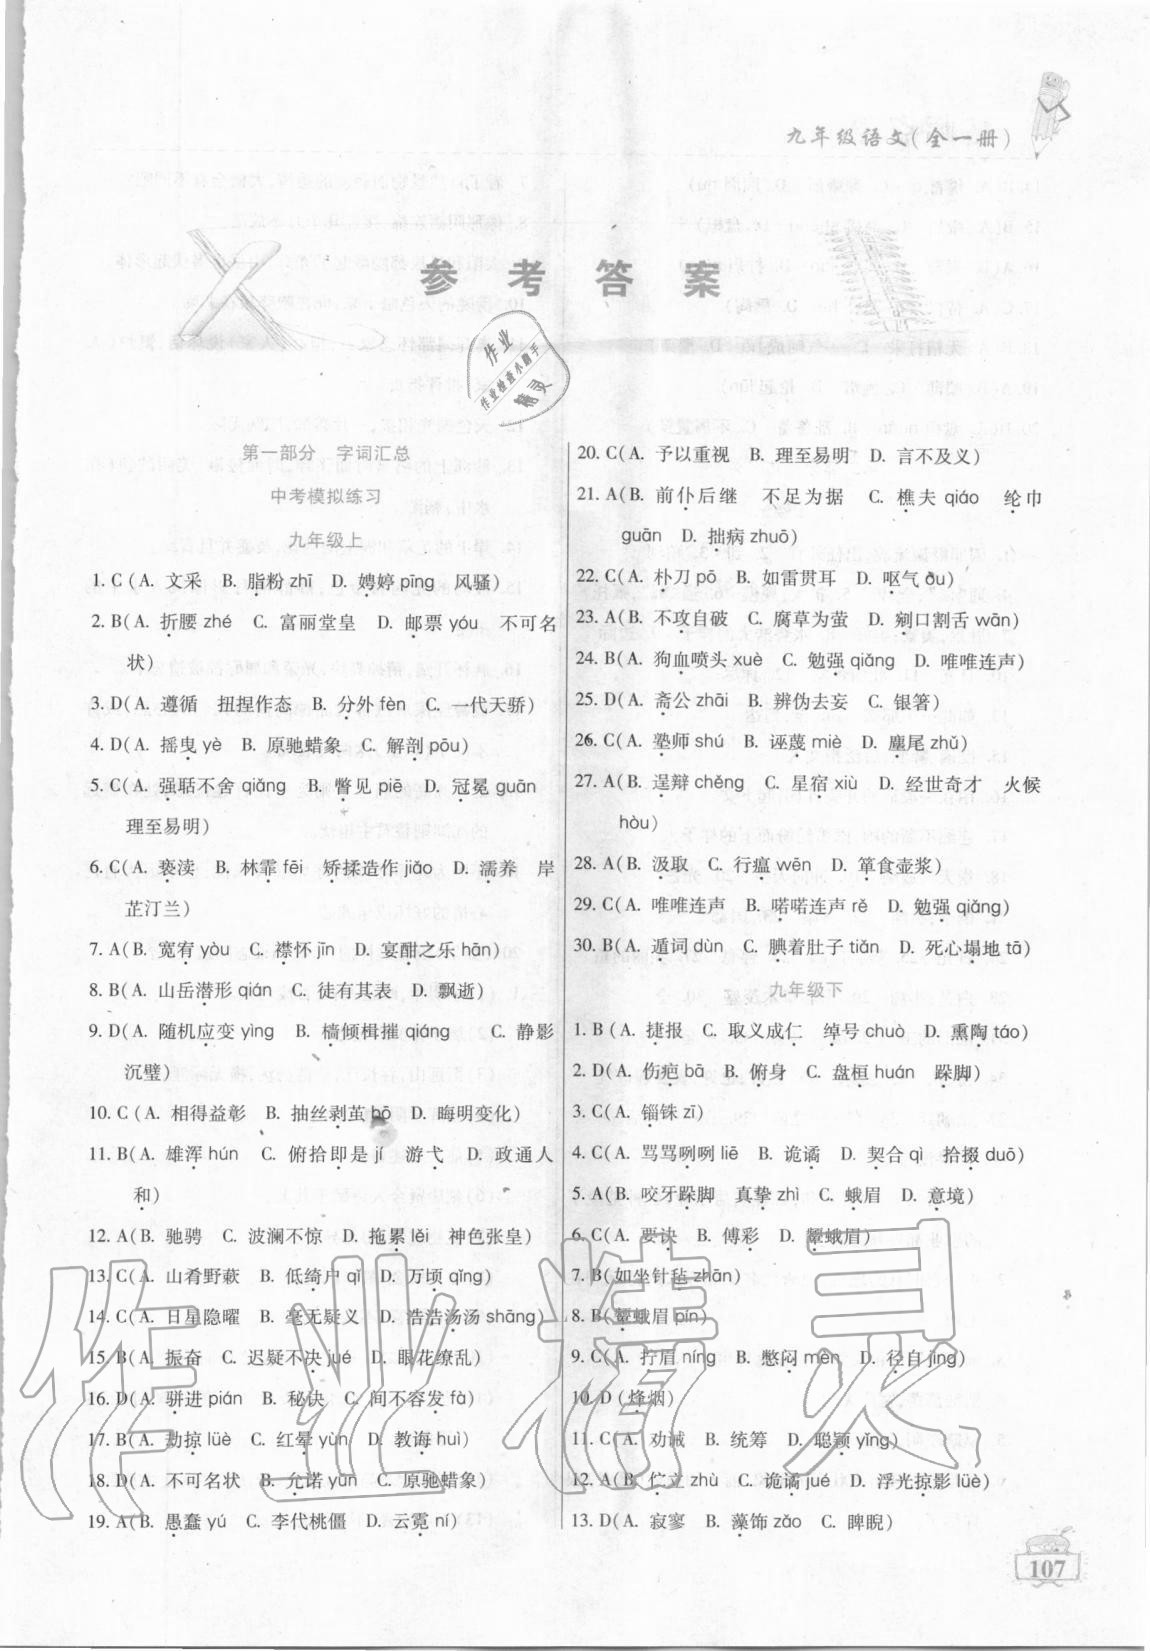 九年级语文(全一册)
参考答案
作业
作业检查小助手
精灵
第一部分 字词汇总
中考模拟练习
九年级上
1. C(A. 文采 B. 脂粉 zhī D. 娉婷 pīng 风骚)
2. B(A. 折腰 zhé C. 富丽堂皇 D. 邮票 yóu 不可名
状)
3. D(A. 遵循 扭捏作态 B. 分外 fèn C. 一代天骄)
4. D(A. 摇曳 yè B. 原驰蜡象 C. 解剖 pōu)
5. C(A. 强聒不舍 qiǎng B. 瞥见 piē D. 冠冕 guān
理至易明)
6. C(A. 亵渎 B. 林霏 fēi 矫揉造作 jiǎo D. 濡养 岸
芷汀兰)
7. A(B. 宽宥 yòu C. 襟怀 jīn D. 宴酣之乐 hān)
8. B(A. 山岳潜形 qián C. 徒有其表 D. 飘逝)
9. D(A. 随机应变 yìng B. 樯倾楫摧 qiáng C. 静影
沉璧)
10. C(A. 相得益彰 B. 抽丝剥茧 bō D. 晦明变化)
11. B(A. 雄浑 hún C. 俯拾即是 jí 游弋 D. 政通人
和)
12. A(B. 驰骋 C. 波澜不惊 D. 拖累 lěi 神色张皇)
13. C(A. 山肴野蔌 B. 低绮户 qǐ D. 万顷 qǐng)
14. C(A. 日星隐曜 B. 毫无疑义 D. 浩浩汤汤 shāng)
15. B(A. 振奋 C. 迟疑不决 jué D. 眼花缭乱)
16. D(A. 骈进 pián B. 秘诀 C. 间不容发 fà)
17. B(A. 劫掠 lüè C. 红晕 yùn D. 教诲 huì)
18. D(A. 不可名状 B. 允诺 yǔn C. 原驰蜡象)
19. A(B. 愚蠢 yú C. 李代桃僵 D. 云霓 ní)
20. C(A. 予以重视 B. 理至易明 D. 言不及义)
21. A(B. 前仆后继 不足为据 C. 樵夫 qiáo 纶巾
guān D. 拙病 zhuō)
22. C(A. 朴刀 pō B. 如雷贯耳 D. 呕气 ǒu)
23. A(B. 不攻自破 C. 腐草为萤 D. 剜口割舌 wān)
24. B(A. 狗血喷头 xuè C. 勉强 qiǎng D. 唯唯连声)
25. D(A. 斋公 zhāi B. 辨伪去妄 C. 银箸)
26. C(A. 塾师 shú B. 诬蔑 miè D. 麈尾 zhǔ)
27. A(B. 逞辩 chěng C. 星宿 xiù D. 经世奇才 火候
hòu)
28. A(B. 汲取 C. 行瘟 wēn D. 箪食壶浆)
29. C(A. 唯唯连声 B. 喏喏连声 rě D. 勉强 qiǎng)
30. B(A. 遁词 dùn C. 腆着肚子 tiǎn D. 死心塌地 tā)
九年级下
1. B(A. 捷报 C. 取义成仁 绰号 chuò D. 熏陶 táo)
2. D(A. 伤疤 bā B. 俯身 C. 盘桓 huán 跺脚)
3. C(A. 锱铢 zī)
4. C(A. 骂骂咧咧 liē B. 诡谲 D. 契合 qì 拾掇 duō)
5. A(B. 咬牙跺脚 真挚 zhì C. 蛾眉 D. 意境)
6. C(A. 要诀 B. 傅彩 D. 颦蛾眉)
7. B(如坐针毡 zhān)
8. B(颦蛾眉 pín)
9. C(A. 拧眉 níng B. 憋闷 mēn D. 径自 jìng)
10. D(烽烟)
11. C(A. 劝诫 B. 统筹 D. 聪颖 yǐng)
12. A(B. 伫立 zhù C. 诡谲 jué D. 浮光掠影 lüè)
13. D(A. 寂寥 B. 藻饰 zǎo C. 睥睨)
作业精灵
107